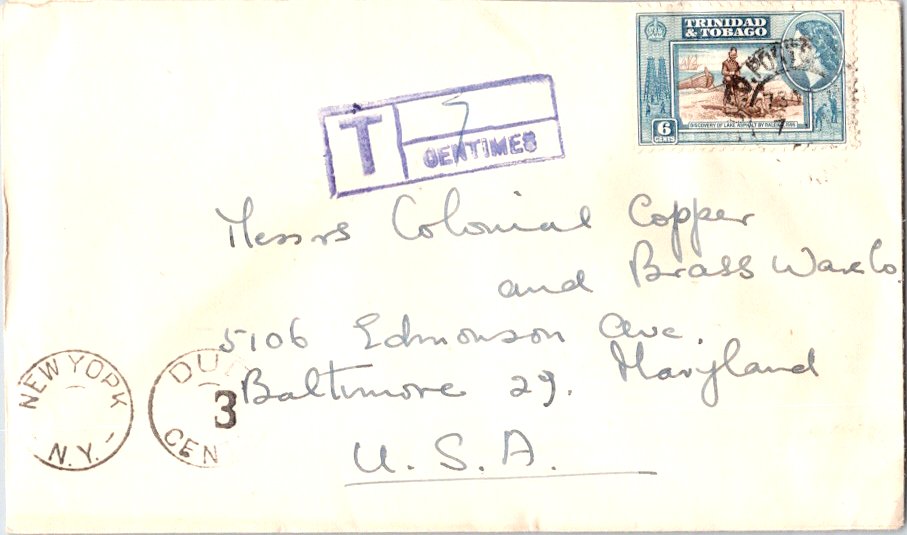 TRINIDAD
& TOBAGO
6
CENTS
DISCOVERY OF LAKE ASPHALT BY RALEIGH, 1595
T
7
CENTIMES
Messrs Colonial Copper
and Brass Ware Co.
5106 Edmonson Ave.
Baltimore 29. Maryland
U.S.A.
NEW YORK
N.Y.
DU
3
CEN